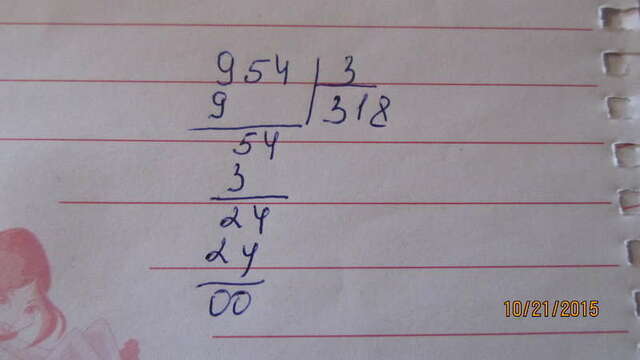 954 3
9 318
54
3
24
24
00
10/21/2015